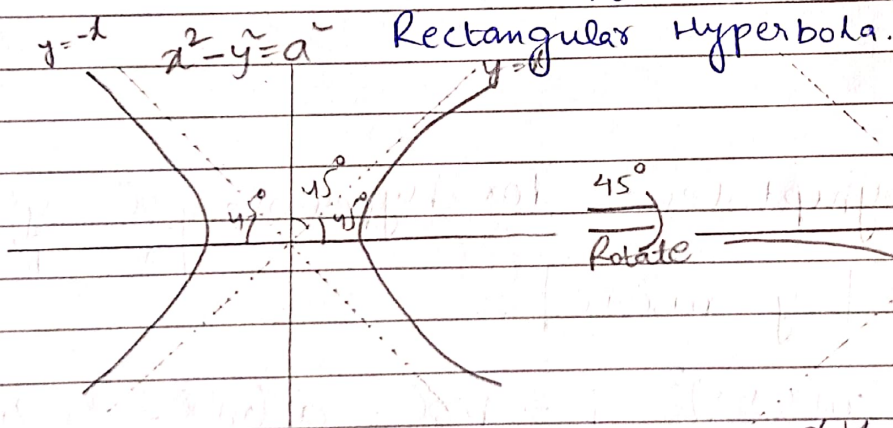 y=-x x²-y²=a² Rectangular Hyperbola.
y=x
45°
45° 45°
45°
Rotate